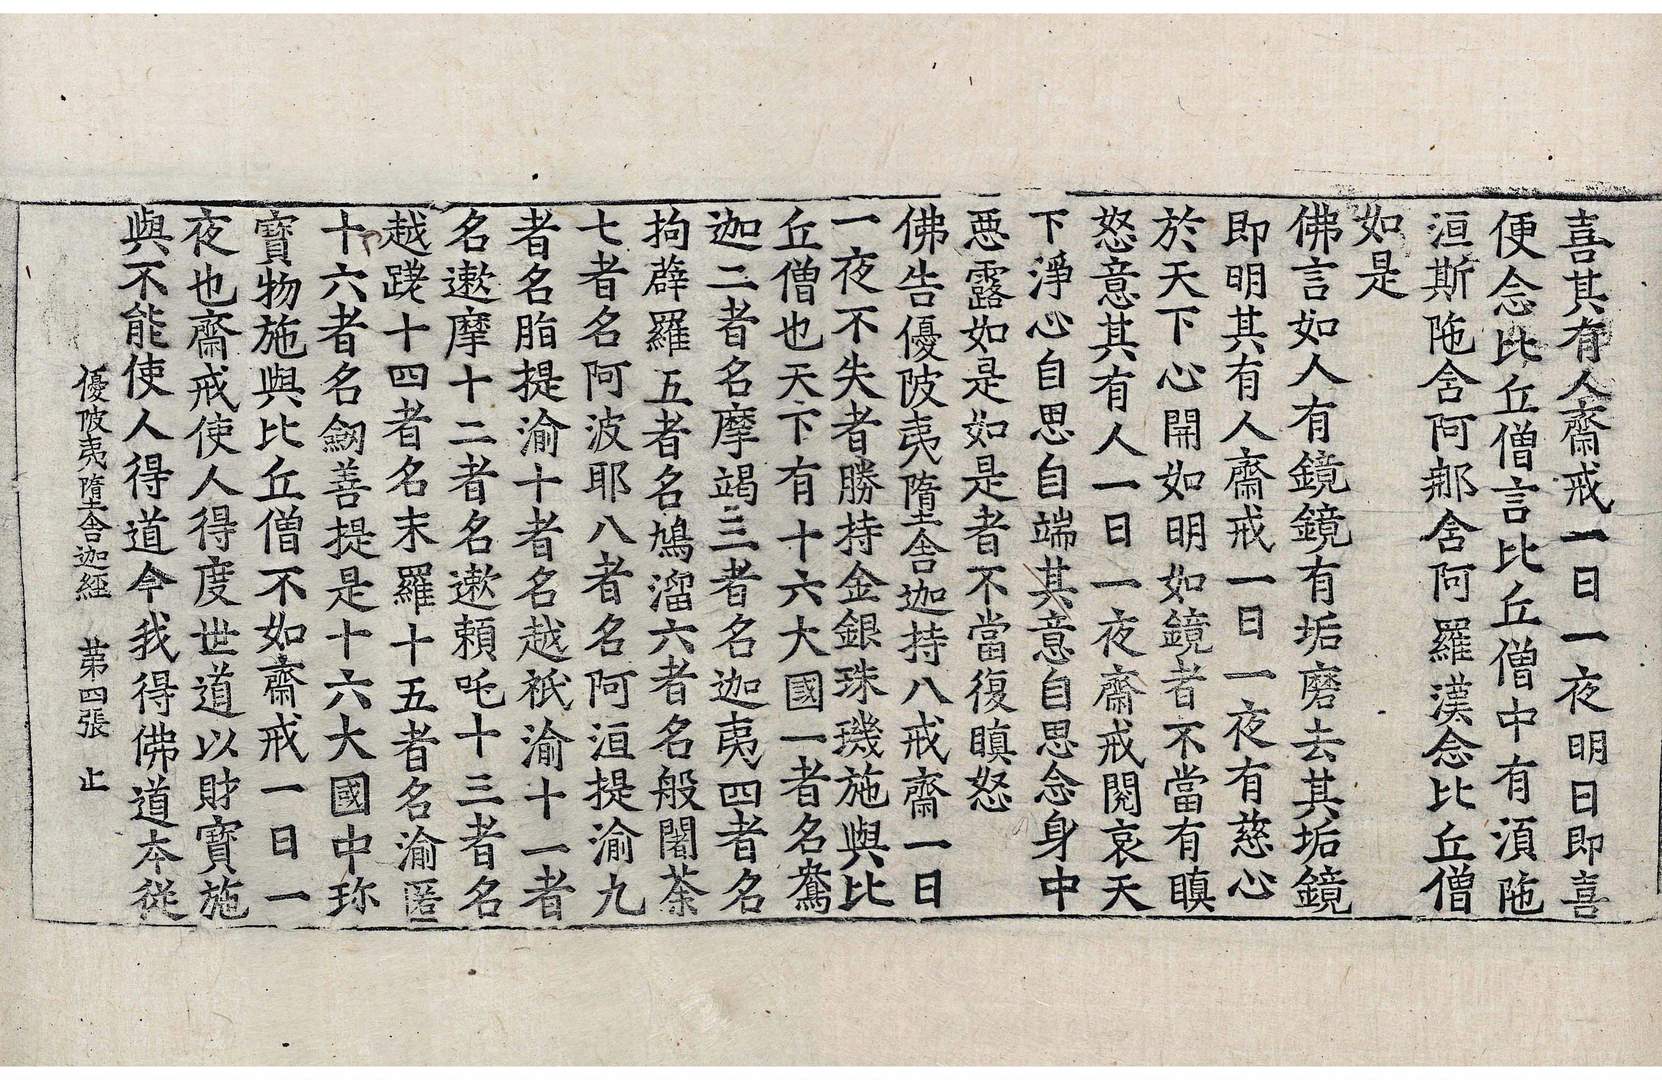 喜其有人齋戒一日一夜明日即喜
便念比丘僧言比丘僧中有湏陁
洹斯陁含阿那含阿羅漢念比丘僧
如是
佛言如人有鏡鏡有垢磨去其垢鏡
即明其有人齋戒一日一夜有慈心
於天下心開如明如鏡者不當有瞋
怒意其有人一日一夜齋戒閔哀天
下淨心自思自端其意自思念身中
惡露如是如是者不當復瞋怒
佛告優陂夷墮舍迦持八戒齋一日
一夜不失者勝持金銀珠璣施與比
丘僧也天下有十六大國一者名鴦
迦二者名摩竭三者名迦夷四者名
拘薜羅五者名鳩溜六者名般闍荼
七者名阿波耶八者名阿洹提渝九
者名脂提渝十者名越祇渝十一者
名遬摩十二者名遬賴吒十三者名
越蹝十四者名末羅十五者名渝匿
十六者名劒善提是十六大國中珎
寶物施與比丘僧不如齋戒一日一
夜也齋戒使人得度世道以財寶施
與不能使人得道今我得佛道本從
優陂夷墮舍迦經 苐四張 止